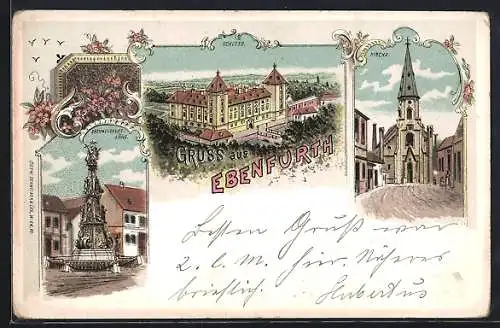 SCHLOSS.
KIRCHE.
DREIFALTIGKEITS
SÄULE
GRUSS aus
EBENFURTH
Besten Gruß war
2. l. M. hier. Näheres
brieflich. Hubertus